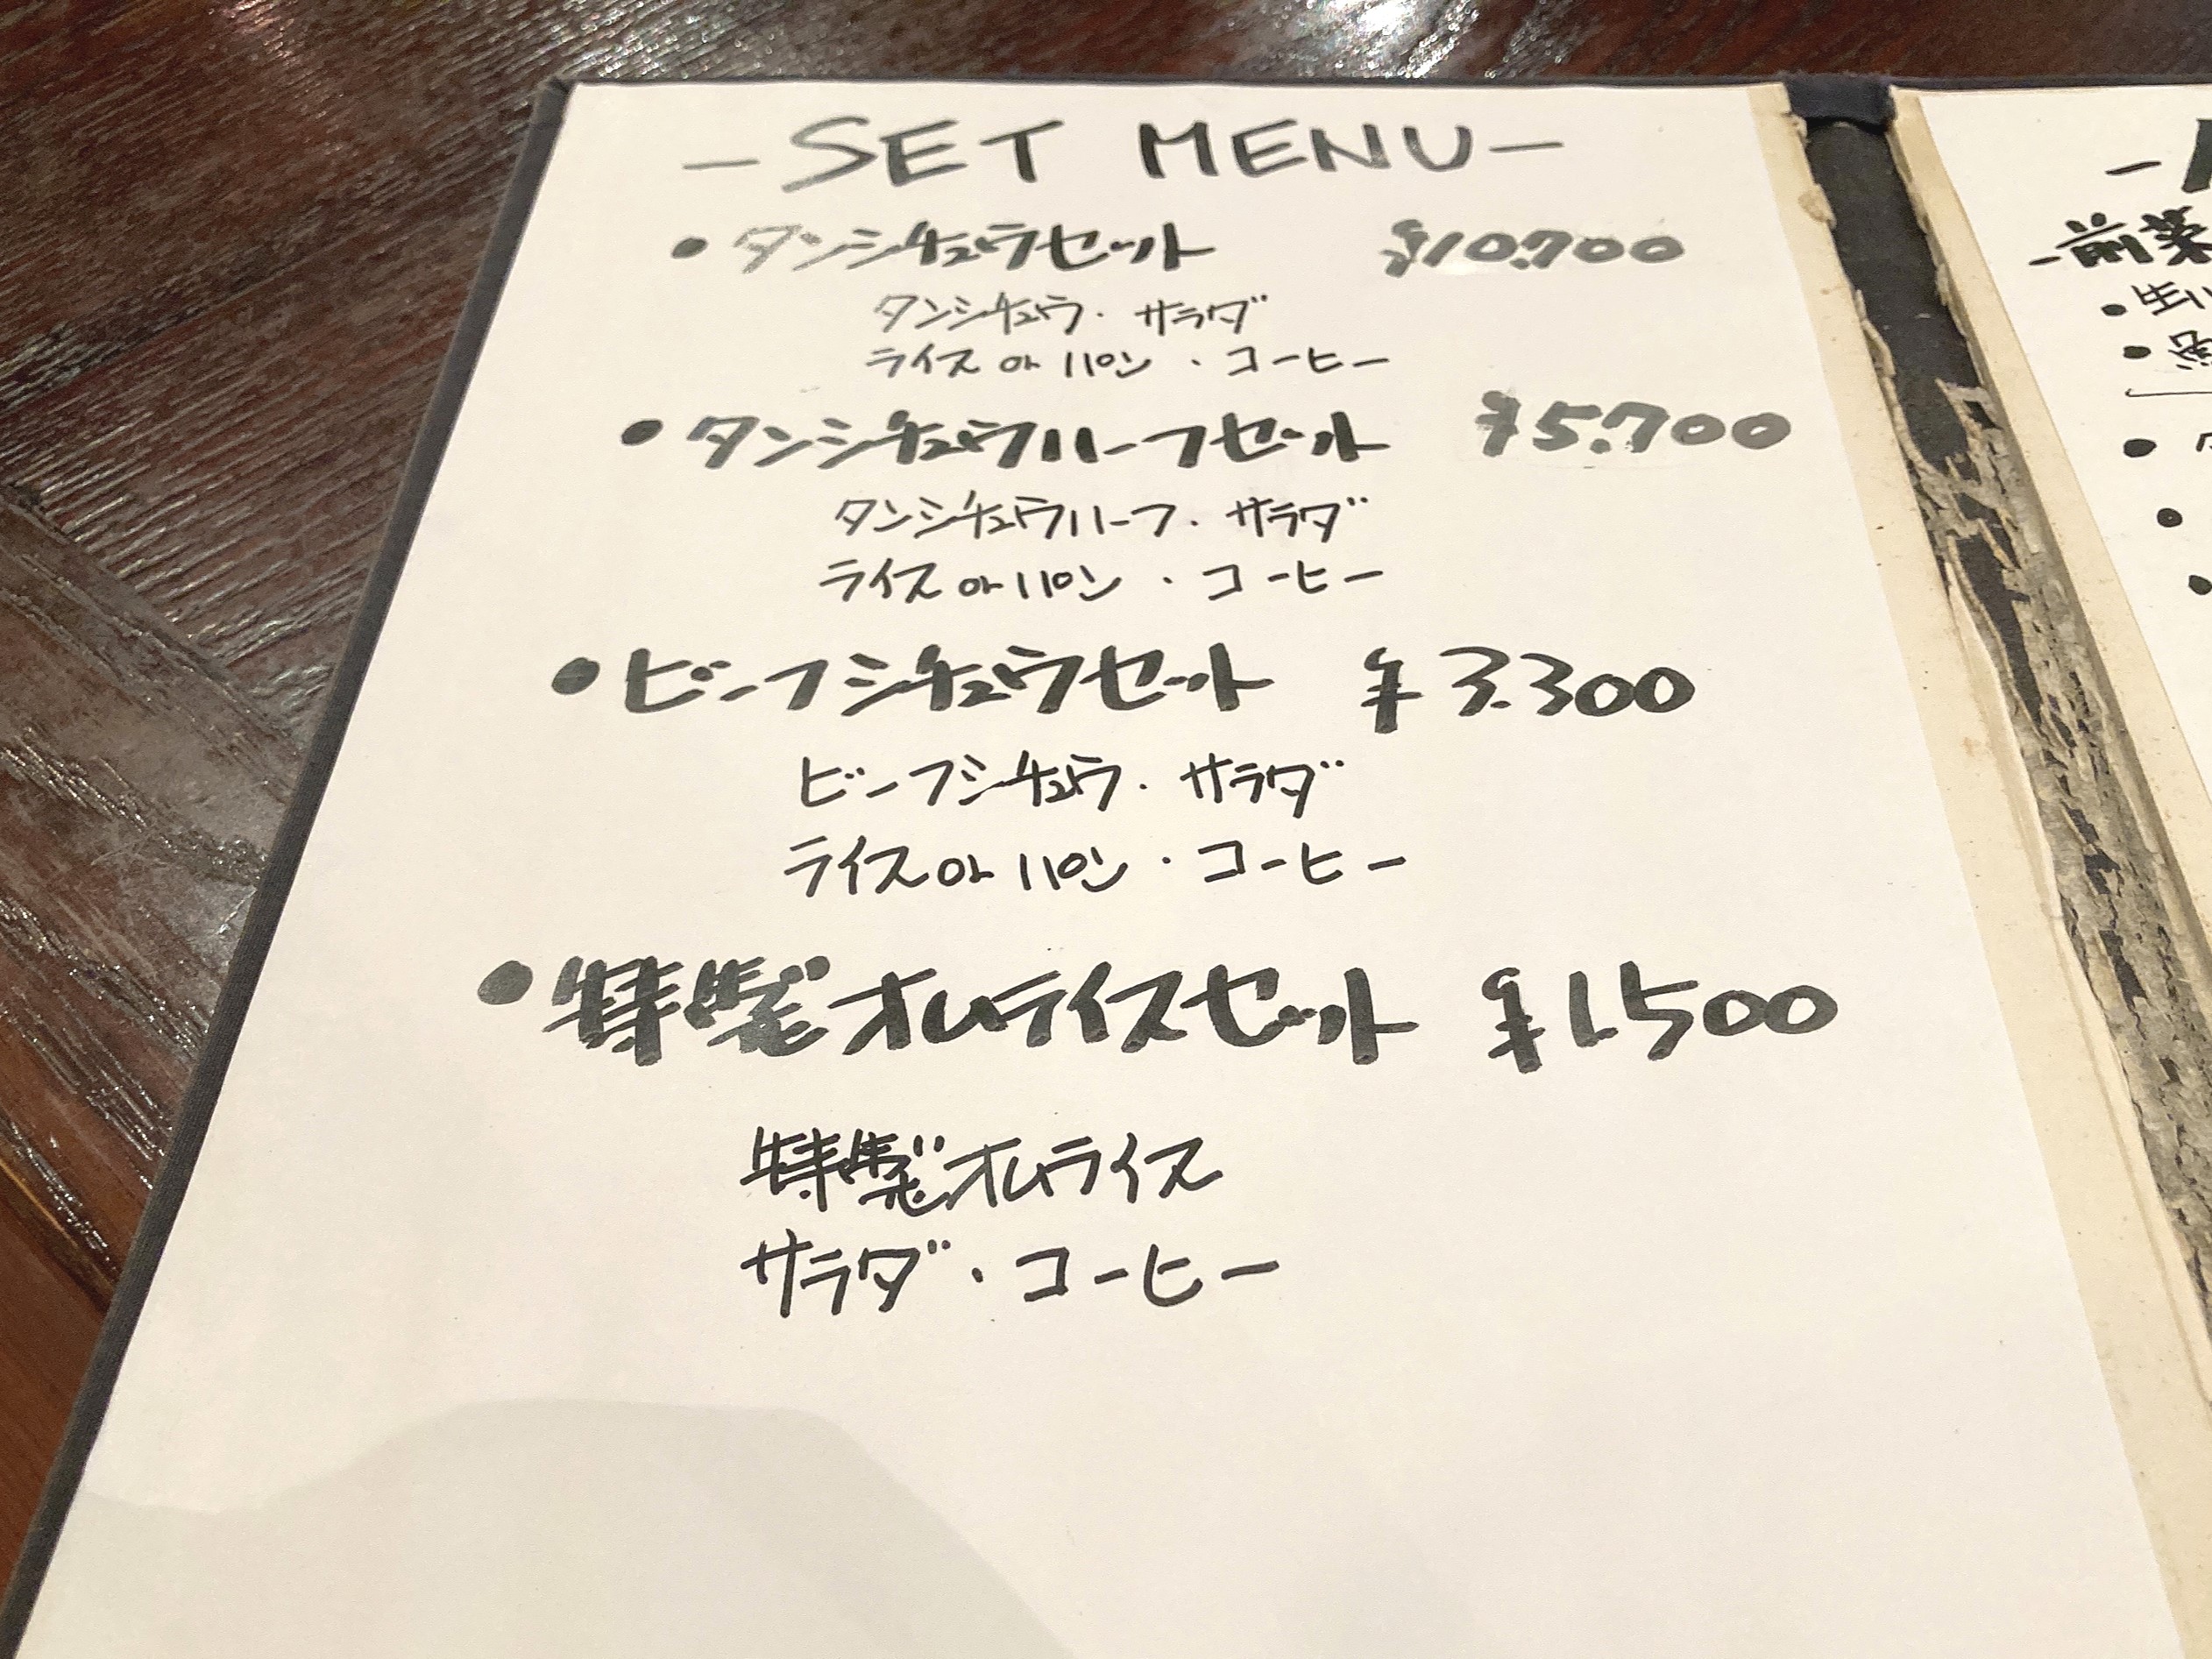 -SET MENU-
• タンシチュウセット ¥10.700
タンシチュウ・サラダ
ライス or パン・コーヒー
• タンシチュウハーフセット ¥5.700
タンシチュウハーフ・サラダ
ライス or パン・コーヒー
• ビーフシチュウセット ¥3.300
ビーフシチュウ・サラダ
ライス or パン・コーヒー
• 特製オムライスセット ¥1.500
特製オムライス
サラダ・コーヒー
-前菜
• 生ハ